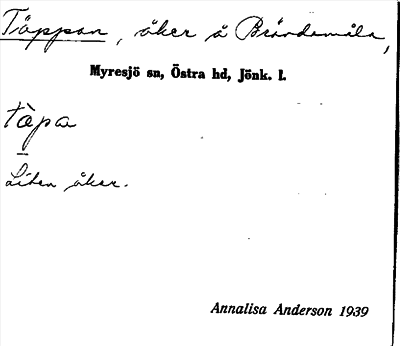 Täppan, åker å Brändamåla,
Myresjö sn, Östra hd, Jönk. l.
tàpa
Liten åker.
Annalisa Anderson 1939